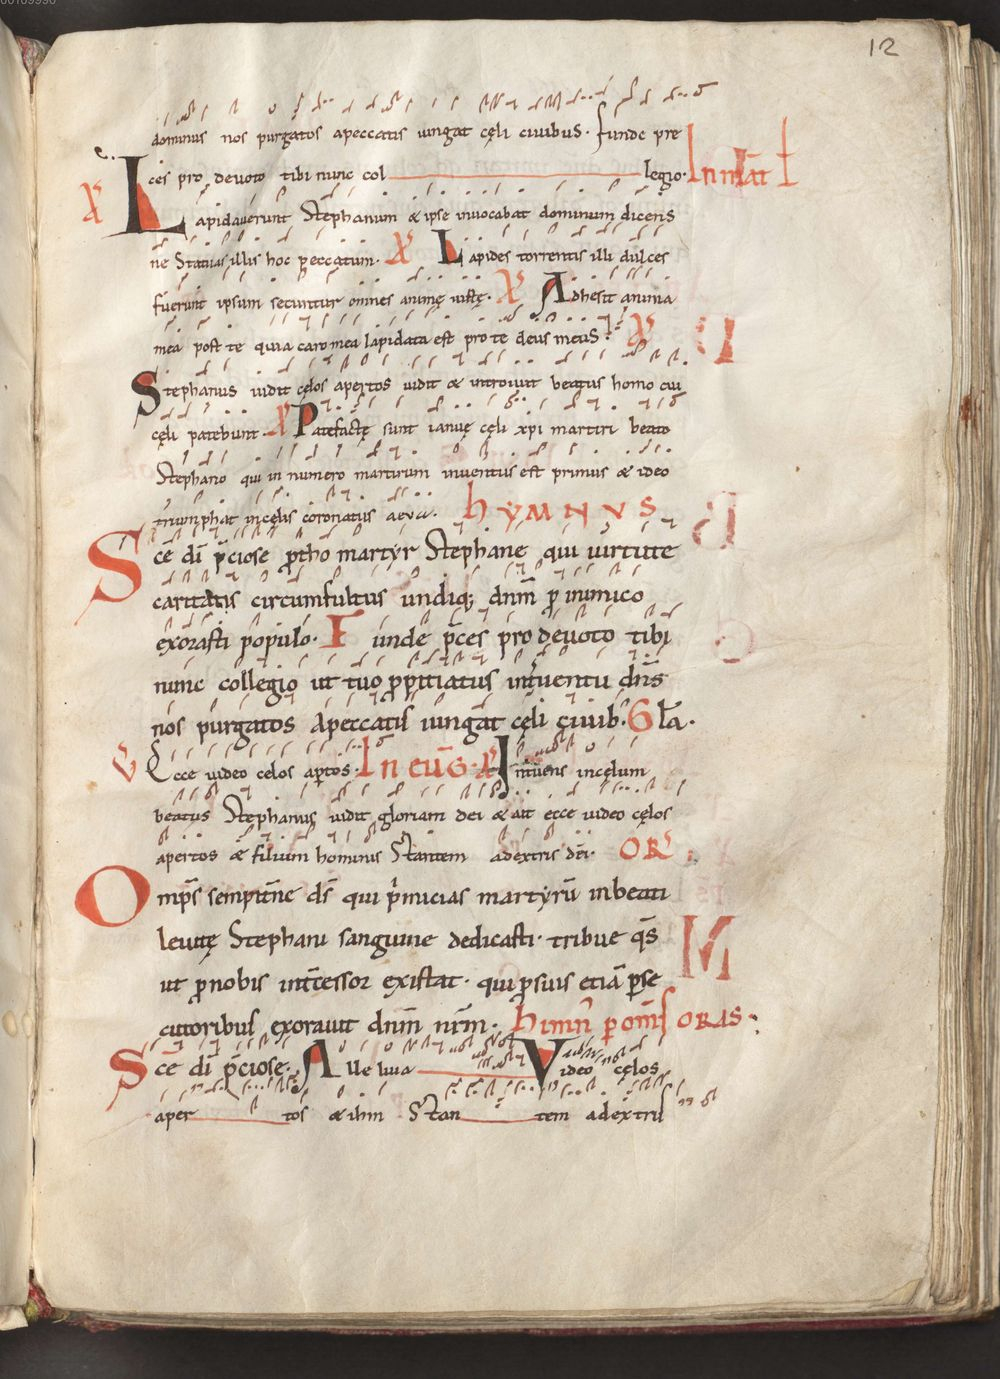 12
dominus nos purgatos apeccatis iungat cęli ciuibus. Funde pre
ces pro deuoto tibi nunc col legio. In mat
Lapidauerunt Stephanum & ipse inuocabat dominum dicens
ne Statuas illis hoc peccatum. Lapides torrentis illi dulces
fuerunt ipsum secuntur omnes animę iustę. Adhesit anima
mea post te quia caro mea lapidata est pro te deus meus.
Stephanus uidit cęlos apertos uidit & introiuit beatus homo cui
cęli patebunt. Patefactę sunt ianuę cęli xpi martiri beato
Stephano qui in numero martirum inuentus est primus & ideo
triumphat in cęlis coronatus aeuia. hYMNVS
Sce di p̄ciose p̄tho martyr Stephane qui uirtute
caritatis circumfultus undiq; dnm̄ p̄ inimico
exorasti populo. Funde p̄ces pro deuoto tibi
nunc collegio ut tuo p̄pitiatus int̄uentu dn̄s
nos purgatos apeccatis iungat cęli ciuib. Gl̄a.
V Ecce uideo celos ap̄tos. In eūG. Intuens in celum
beatus Stephanus uidit gloriam dei & ait ecce uideo cęlos
apertos & filium hominis Stantem adextris dei. OR
Omp̄s sempit̄ne ds̄ qui p̄micias martyrū in beati
leuitę Stephani sanguine dedicasti. tribue qs̄
ut p̄ nobis int̄cessor existat. qui p̄ suis etiā p̄se
cutoribus exorauit dnm̄ nrm̄. himn̄ p om̄s ORAS.
Sce di p̄ciose. Alleluia Video celos
aper tos & ihm̄ Stan tem adextris